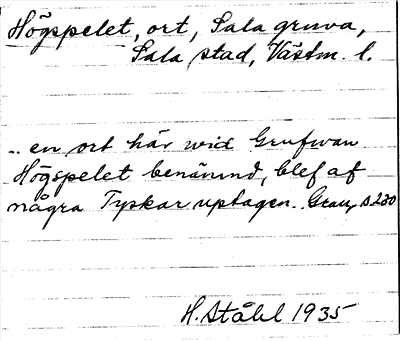 Högspelet, ort, Sala gruva,
Sala stad, Västm. l.
.. en ort här wid Grufwan
Högspelet benämnd, blef af
några Tyskar uptagen.. Grau, s. 280
H. Ståhl 1935